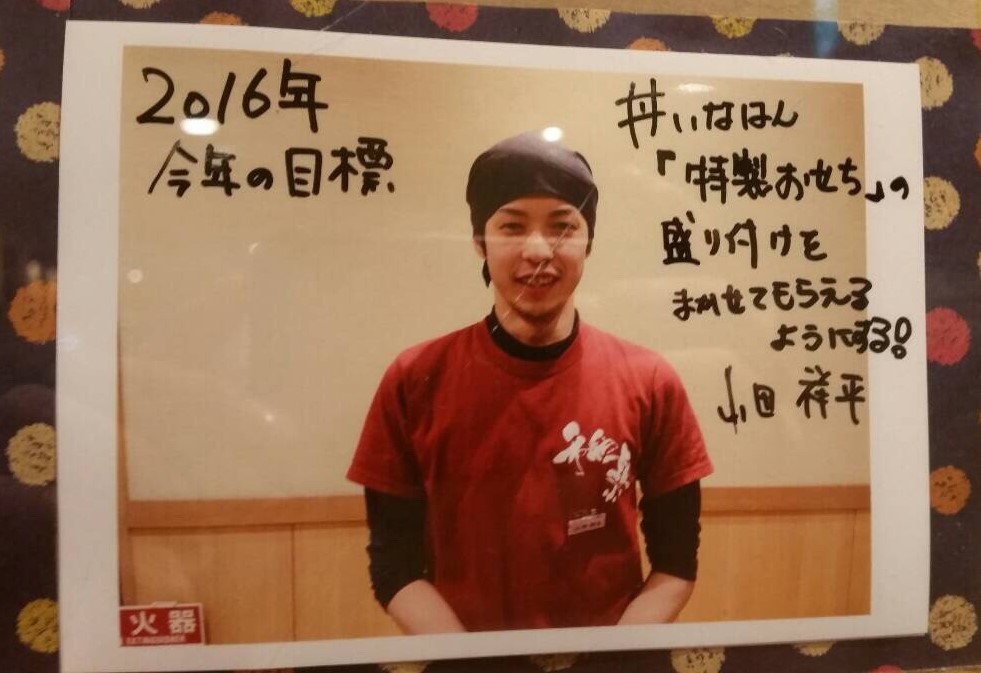 2016年
今年の目標
丼いなはん
「特製おせち」の
盛り付けを
まかせてもらえる
ようにする!
山田 祥平
火器
EXTINGUISHER